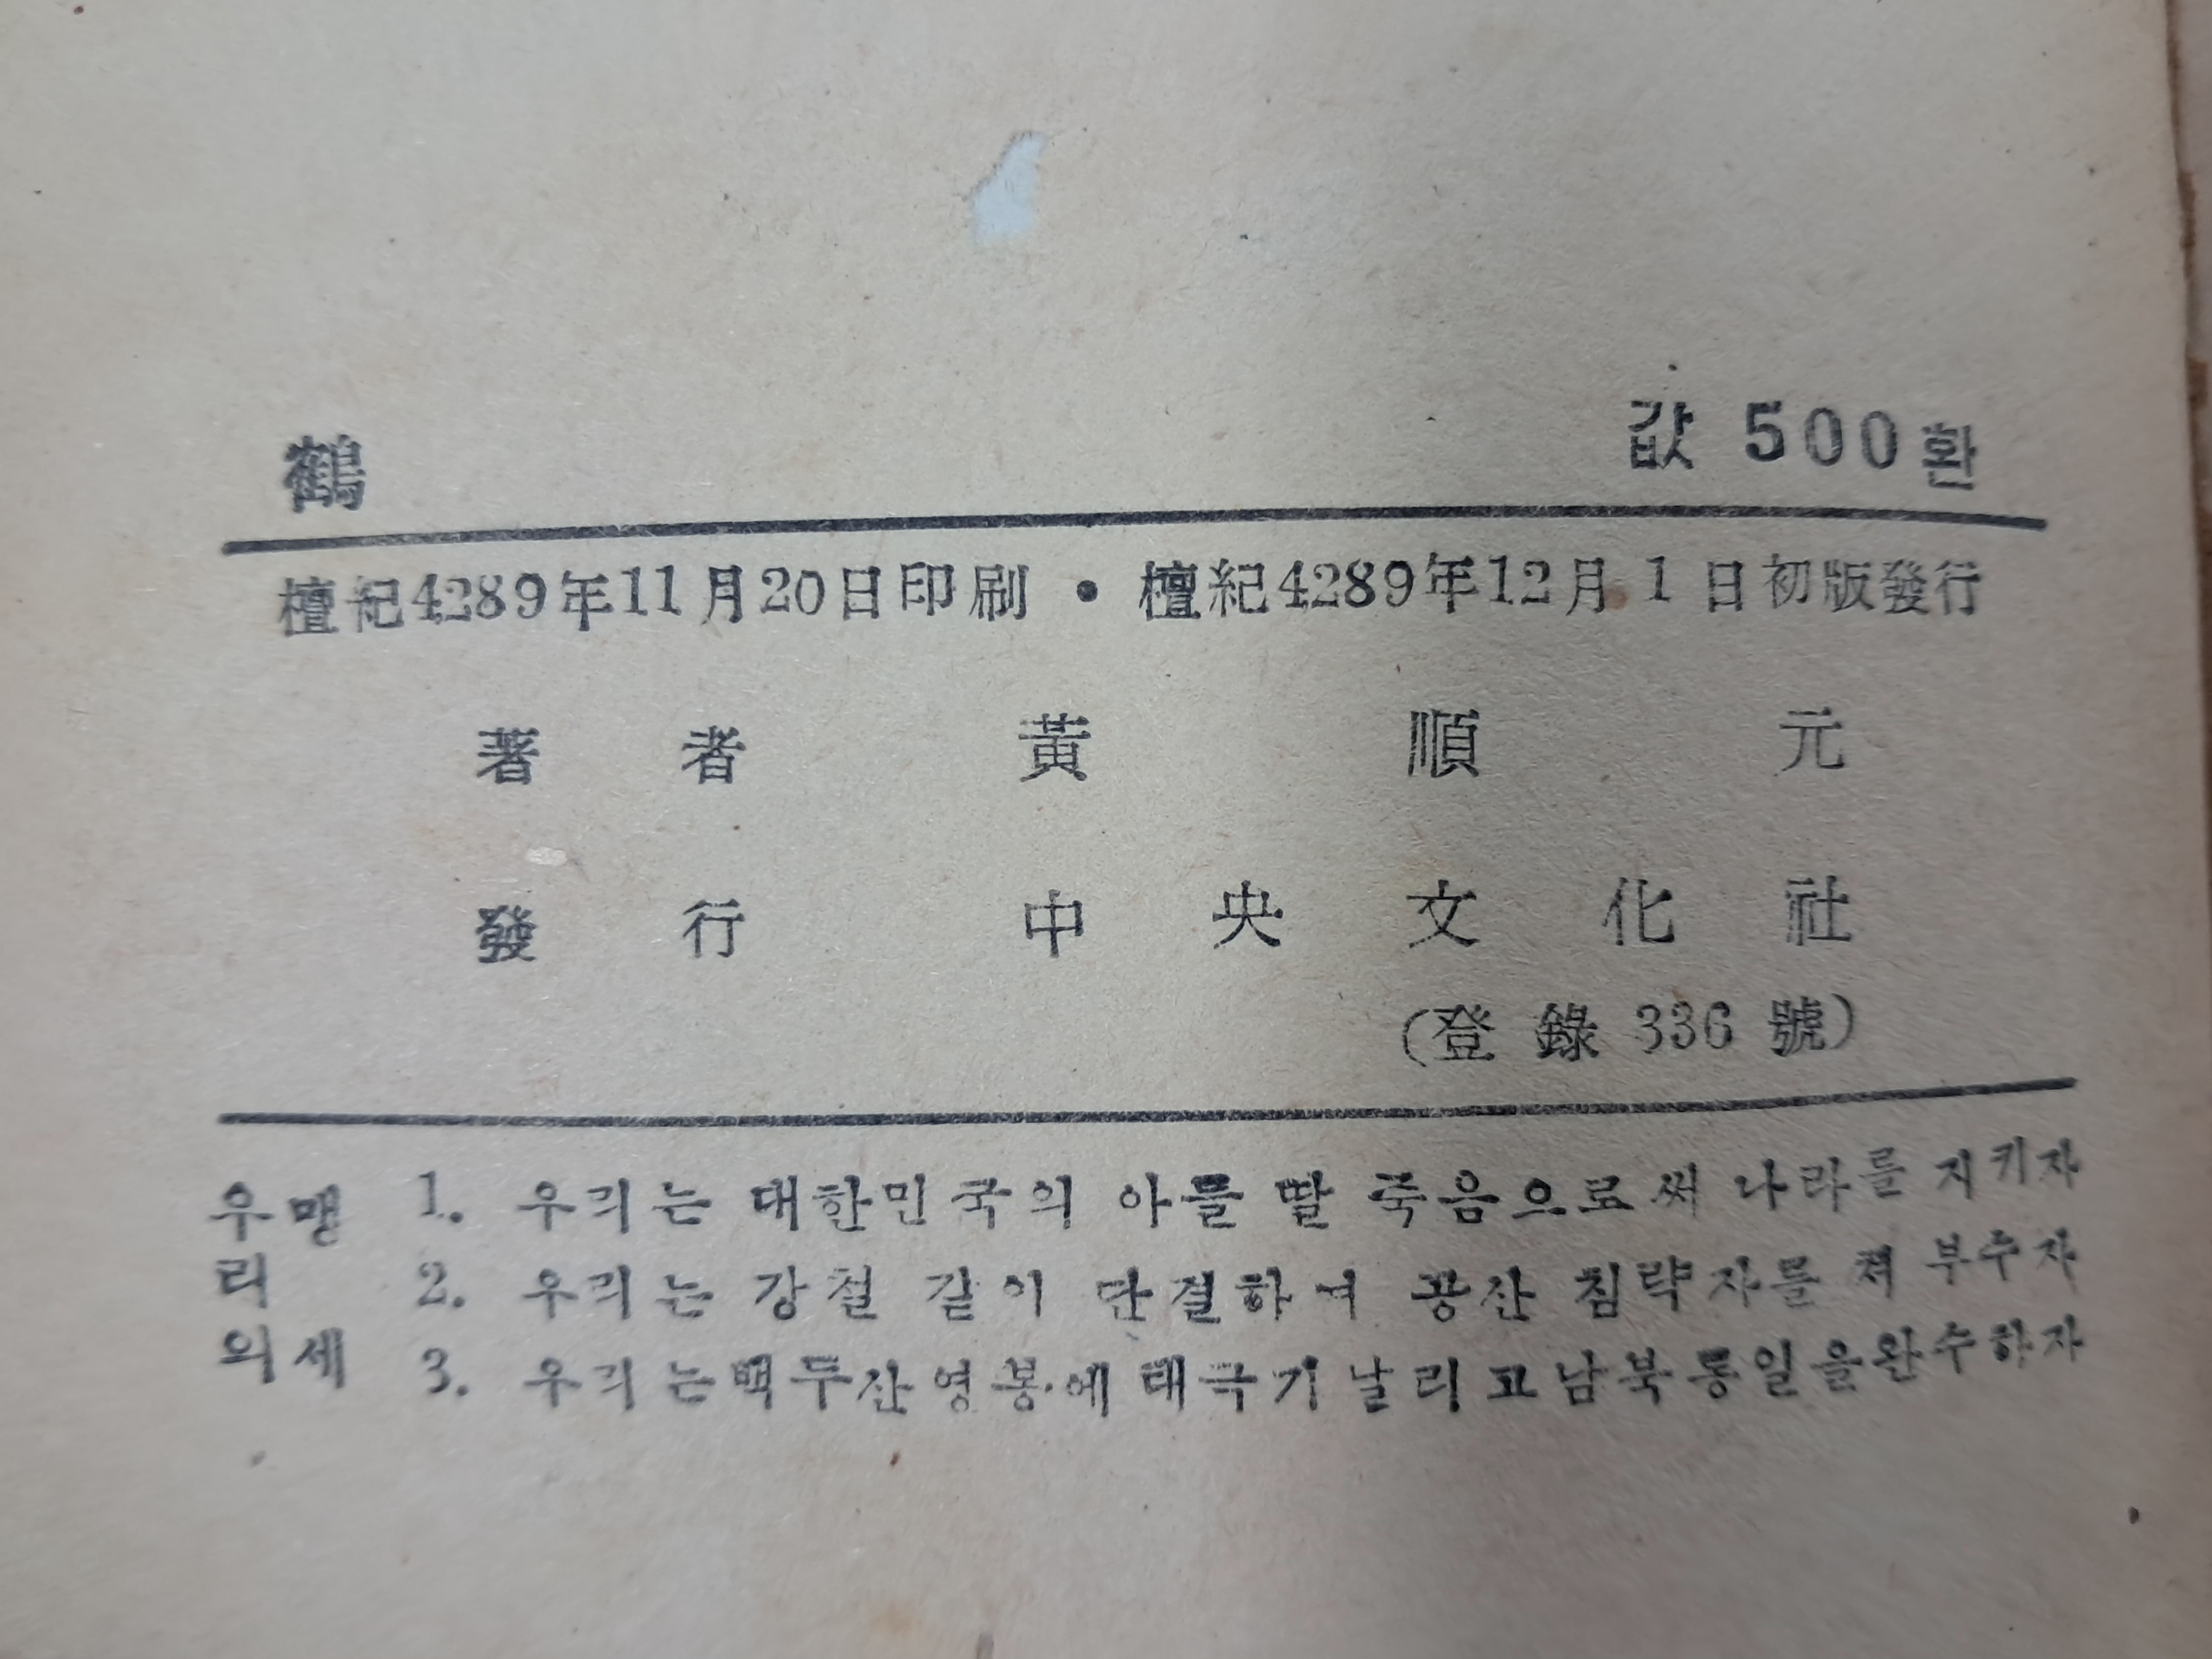 鶴 값 500환
檀紀4289年11月20日印刷 • 檀紀4289年12月1日初版發行
著者 黃順元
發行 中央文化社
(登錄 336 號)
우리의 맹세
1. 우리는 대한민국의 아들 딸 죽음으로써 나라를 지키자
2. 우리는 강철 같이 단결하여 공산 침략자를 쳐 부수자
3. 우리는 백두산 영봉에 태극기 날리고 남북통일을 완수하자